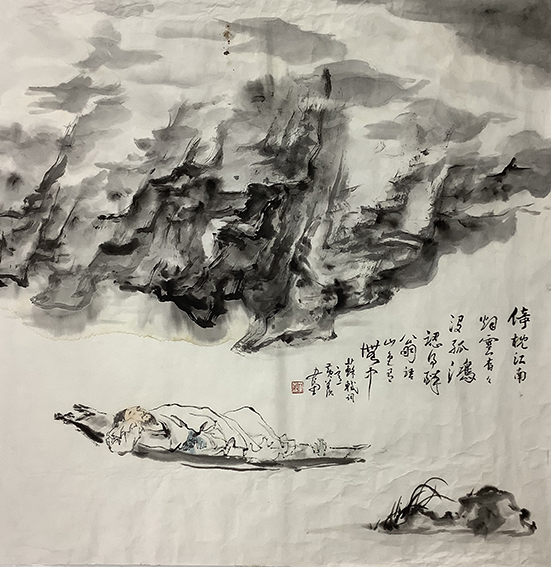 倚枕江南
烟雲杳々
没孤鴻
認得醉
翁語
山色有
無中
蘇軾詞